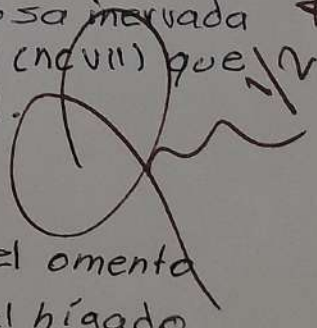 sa inervada
(ncVII) que 1/2
el omento
l hígado